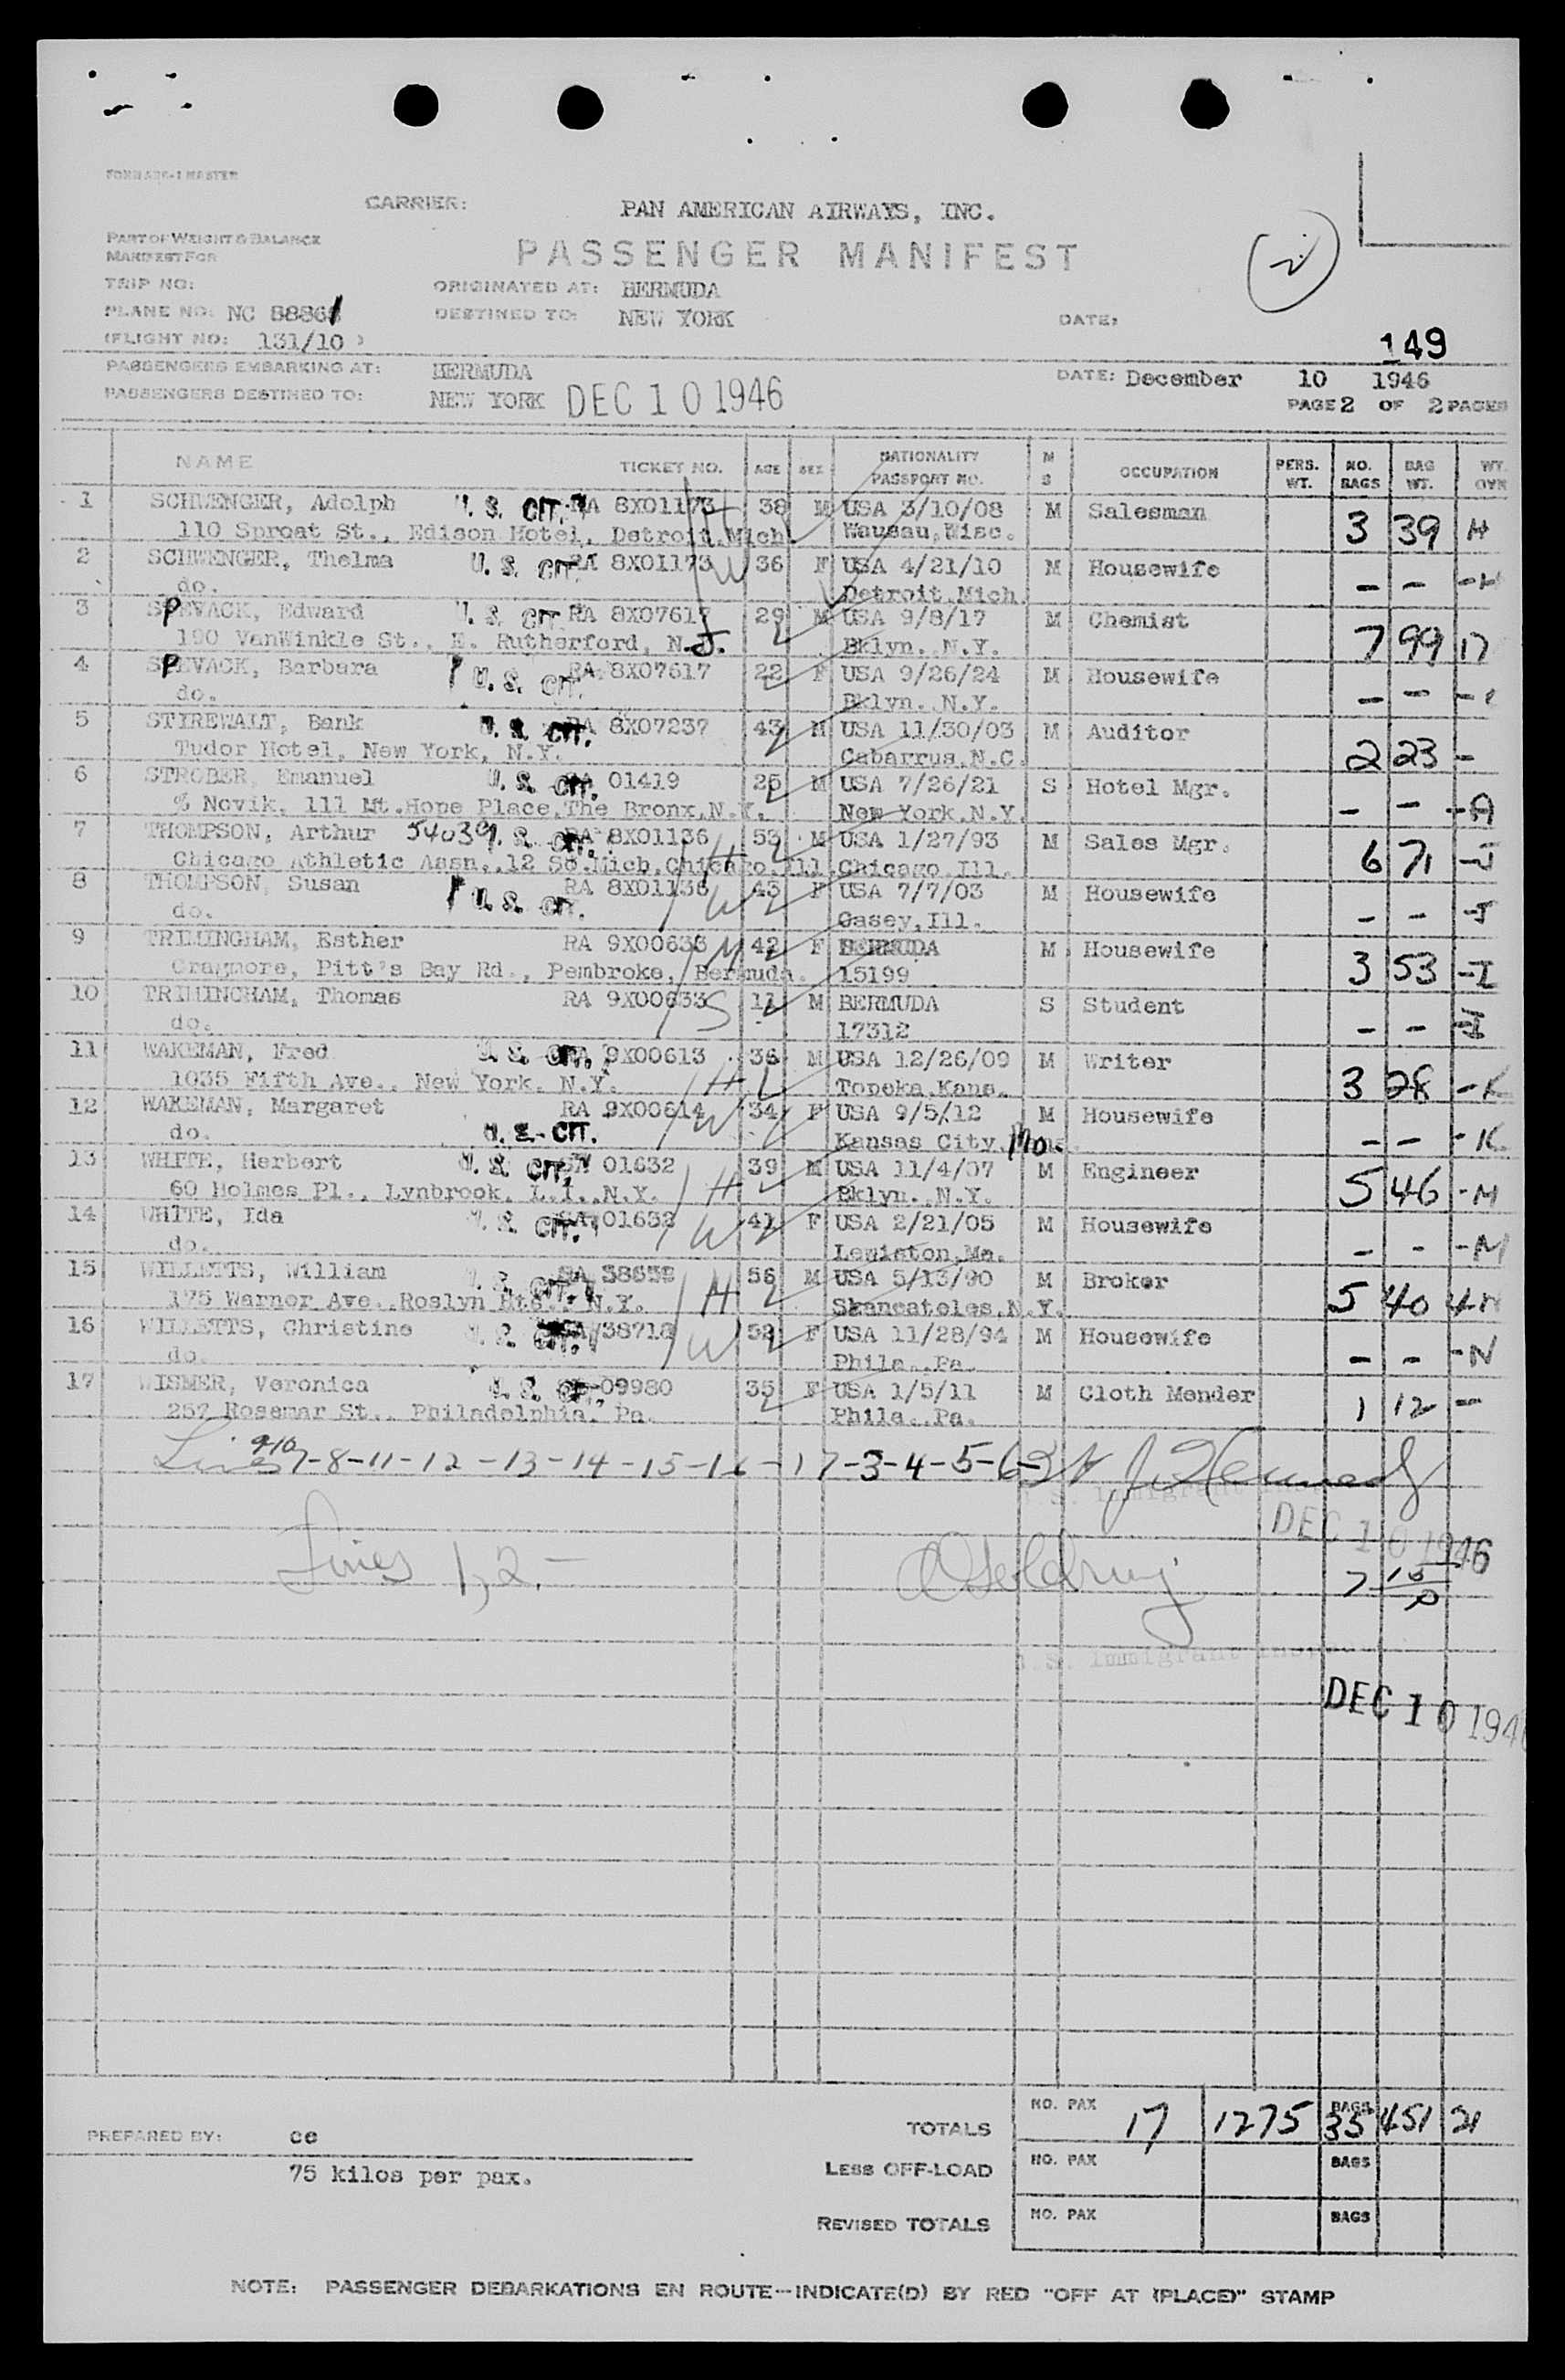 FORM ABR-1 MASTER
CARRIER: PAN AMERICAN AIRWAYS, INC.
PART OF WEIGHT & BALANCE
MANIFEST FOR
PASSENGER MANIFEST
TRIP NO: ORIGINATED AT: BERMUDA
PLANE NO: NC 88861 DESTINED TO: NEW YORK DATE:
(FLIGHT NO: 131/10 )
149
PASSENGERS EMBARKING AT: BERMUDA DATE: December 10 1946
PASSENGERS DESTINED TO: NEW YORK DEC 10 1946 PAGE 2 OF 2 PAGES
NAME TICKET NO. AGE SEX NATIONALITY PASSPORT NO. M S OCCUPATION PERS. WT. NO. BAGS BAG WT. WT. OVR
1 SCHWENGER, Adolph U. S. CIT. RA 8X01173 38 M USA 3/10/08 M Salesman 3 39 H
110 Sproat St., Edison Hotel, Detroit,Mich Wausau,Wisc.
2 SCHWENGER, Thelma U. S. CIT. RA 8X01173 W 36 F USA 4/21/10 M Housewife - - -H
do. Detroit,Mich
3 SPEVACK, Edward U. S. CIT RA 8X07617 29 M USA 9/8/17 M Chemist 7 99 17
190 VanWinkle St., E. Rutherford, N.J. Bklyn. N.Y.
4 SPEVACK, Barbara U. S. CIT. RA 8X07617 22 F USA 9/26/24 M Housewife - - -
do. Bklyn. N.Y.
5 STIREWALT, Bank U. S. CIT. RA 8X07237 43 M USA 11/30/03 M Auditor 2 23 -
Tudor Hotel, New York, N.Y. Cabarrus,N.C.
6 STROBER, Emanuel U. S. CIT. 01419 25 M USA 7/26/21 S Hotel Mgr. - - -A
% Novik, 111 Mt.Hope Place,The Bronx,N.Y. New York,N.Y.
7 THOMPSON, Arthur 54039 U. S. CIT. RA 8X01136 53 M USA 1/27/93 M Sales Mgr. 6 71 -J
Chicago Athletic Assn.,12 So.Mich,Chicago,Ill. H Chicago,Ill.
8 THOMPSON, Susan U. S. CIT. RA 8X01136 W 43 F USA 7/7/03 M Housewife - - -J
do. Casey,Ill.
9 TRIMINGHAM, Esther RA 9X00633 M 42 F BERMUDA M Housewife 3 53 -I
Cragmore, Pitt's Bay Rd., Pembroke, Bermuda. 15199
10 TRIMINGHAM, Thomas RA 9X00633 S 11 M BERMUDA S Student - - -I
do. 17312
11 WAKEMAN, Fred U. S. CIT. 9X00613 36 M USA 12/26/09 M Writer 3 28 -K
1035 Fifth Ave., New York, N.Y. H Topeka,Kans.
12 WAKEMAN, Margaret RA 9X00614 W 34 F USA 9/5/12 M Housewife - - -K
do. U. S. CIT. Kansas City,Mo.
13 WHITE, Herbert U. S. CIT. 01632 39 M USA 11/4/07 M Engineer 5 46 -M
60 Holmes Pl., Lynbrook, L.I.,N.Y. H Bklyn. N.Y.
14 WHITE, Ida U. S. CIT. 01632 W 41 F USA 2/21/05 M Housewife - - -M
do. Lewiston,Me.
15 WILLETTS, William U. S. CIT. SA 38652 56 M USA 5/13/90 M Broker 5 40 4N
175 Warner Ave.,Roslyn Hts., N.Y. H Skaneateles,N.Y.
16 WILLETTS, Christine U. S. CIT. 38718 W 52 F USA 11/28/94 M Housewife - - -N
do. Phila.,Pa.
17 WISMER, Veronica U. S. CIT. 09980 35 F USA 1/5/11 M Cloth Mender 1 12 -
257 Rosemar St., Philadelphia, Pa. Phila.,Pa.
Lines 9-10 7-8-11-12-13-14-15-16-17-3-4-5-6 J. Kennedy
U.S. Immigrant Insp.
DEC 10 1946
Lines 1,2-
U.S. Immigrant Insp.
DEC 10 1946
TOTALS NO. PAX 17 1275 BAGS 35 451 21
PREPARED BY: ce
LESS OFF-LOAD NO. PAX BAGS
75 kilos per pax.
REVISED TOTALS NO. PAX BAGS
NOTE: PASSENGER DEBARKATIONS EN ROUTE--INDICATE(D) BY RED "OFF AT (PLACE)" STAMP